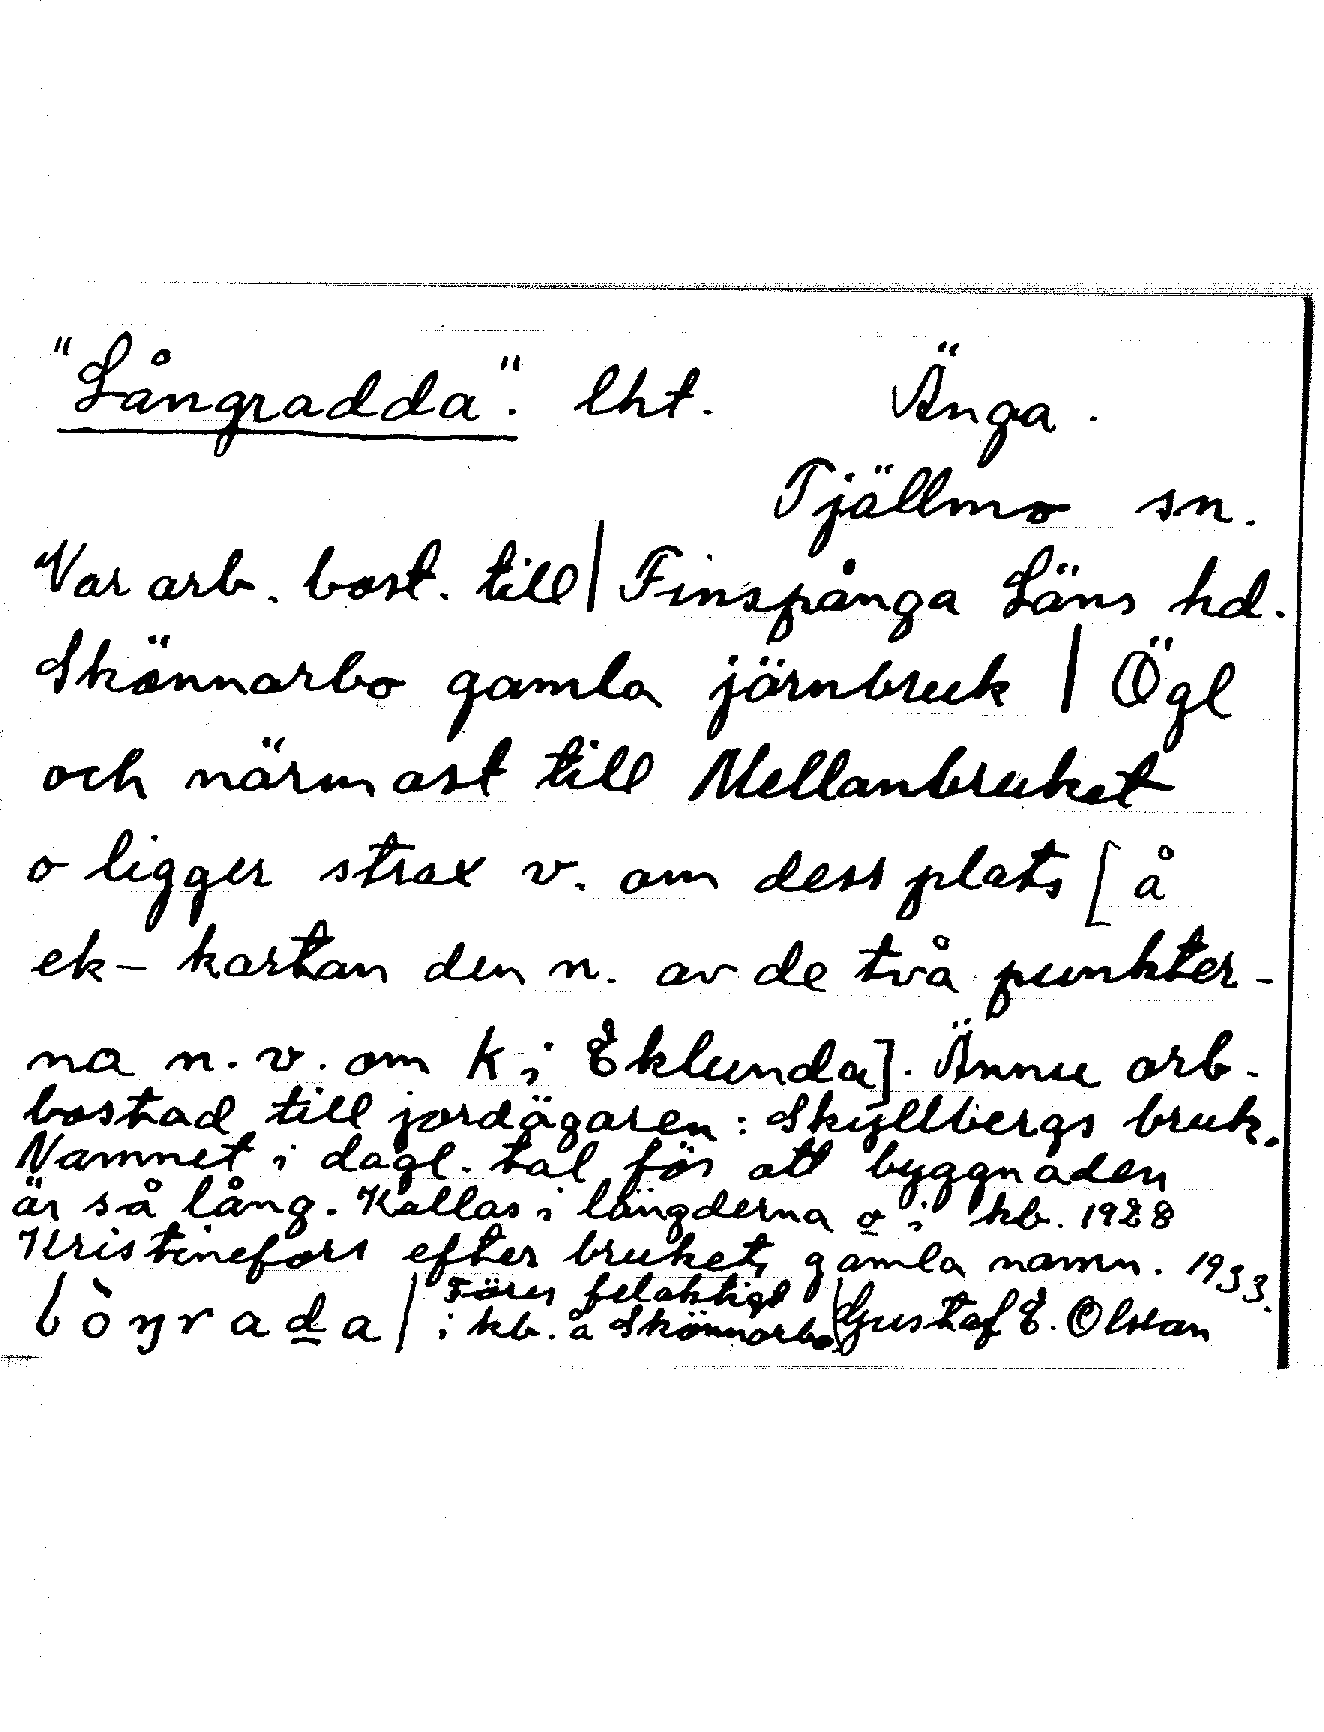 "Långradda". lht. Änga.
Tjällmo sn.
Var arb. bost. till | Finspånga Läns hd.
Skönnarbo gamla järnbruk | Ögl
och närmast till Mellanbruket
o ligger strax v. om dess plats [å
ek-kartan den n. av de två punkter-
na n.v. om k i Eklunda]. Ännu arb-
bostad till jordägaren: Skyllbergs bruk.
Namnet i dagl. tal för att byggnaden
är så lång. Kallas i längderna o i kb. 1928
Kristinefors efter brukets gamla namn. 1933.
lòŋrada | Föres felaktigt
i kb. å Skönnarbo | Gustaf E. Olsson